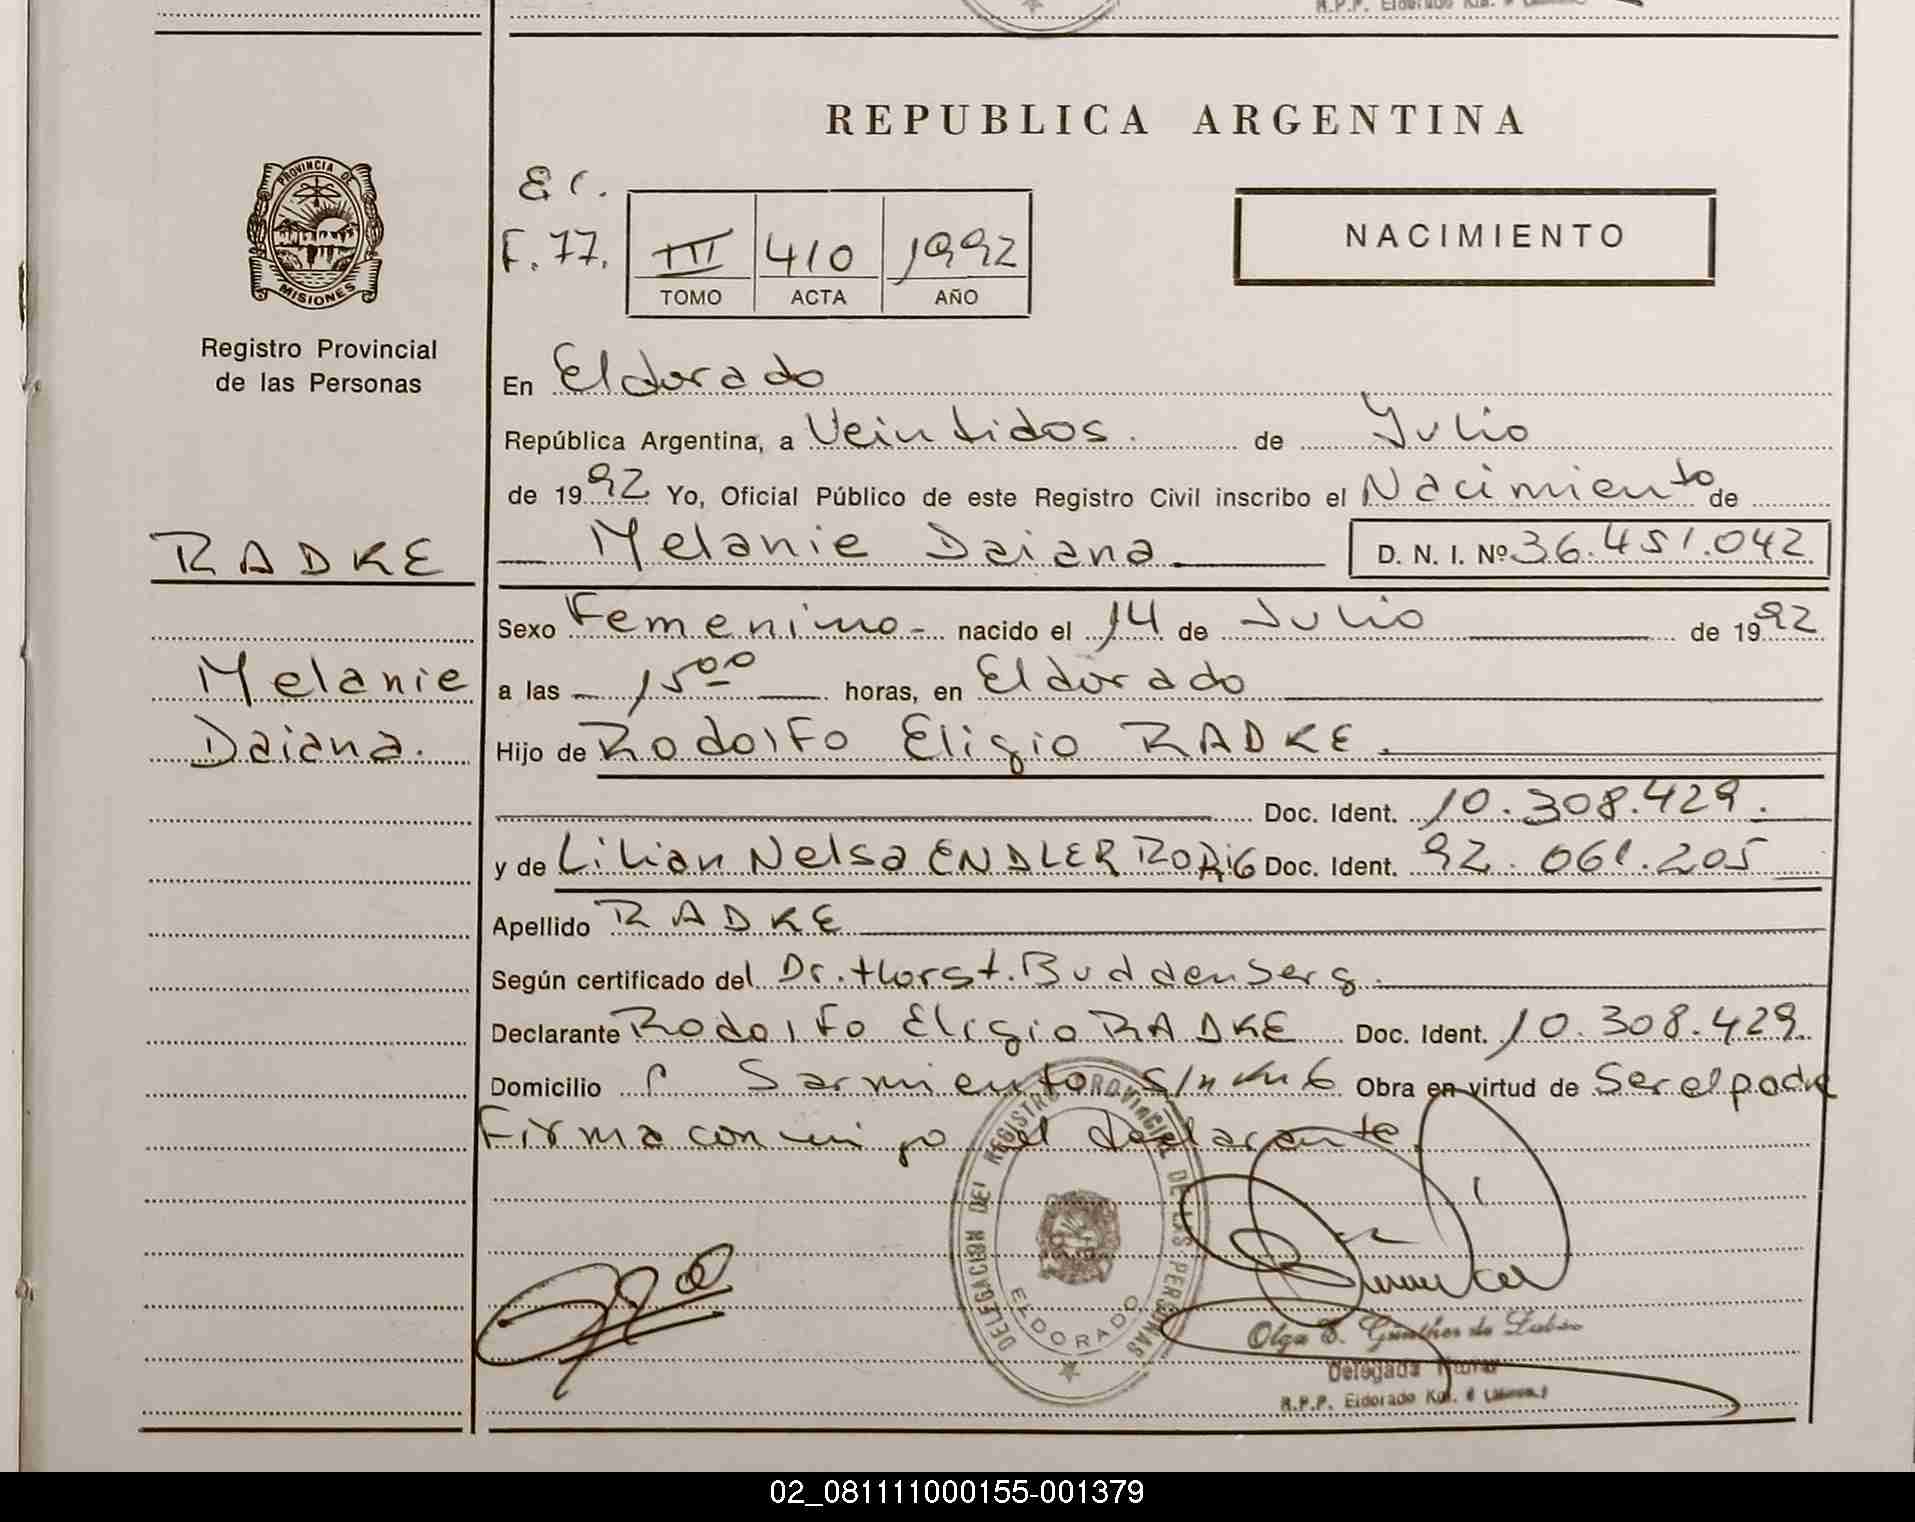 R.P.P. Eldorado Km. 6
REPUBLICA ARGENTINA
PROVINCIA DE
MISIONES
Registro Provincial
de las Personas
F. 77.
III 410 1992
TOMO ACTA AÑO
NACIMIENTO
En Eldorado
República Argentina, a Veintidos. de Julio
de 1992 Yo, Oficial Público de este Registro Civil inscribo el Nacimiento de
RADKE
Melanie Daiana D. N. I. Nº 36.451.042
Sexo Femenino - nacido el 14 de Julio de 1992
Melanie
a las 15 00 horas, en Eldorado
Daiana.
Hijo de Rodolfo Eligio RADKE.
Doc. Ident. 10.308.429.
y de Lilian Nelsa ENDLER RODRIG Doc. Ident. 92.061.205
Apellido RADKE
Según certificado del Dr. Horst. Buddenberg.
Declarante Rodolfo Eligio RADKE Doc. Ident. 10.308.429.
Domicilio Sarmiento s/n km 6 Obra en virtud de Ser el padre
Firma conmigo el declarante.
DELEGACION DEL REGISTRO PROVINCIAL DE LAS PERSONAS
ELDORADO
Olga E. Günther de
Delegada Titular
R.P.P. Eldorado Km. 6
02_081111000155-001379